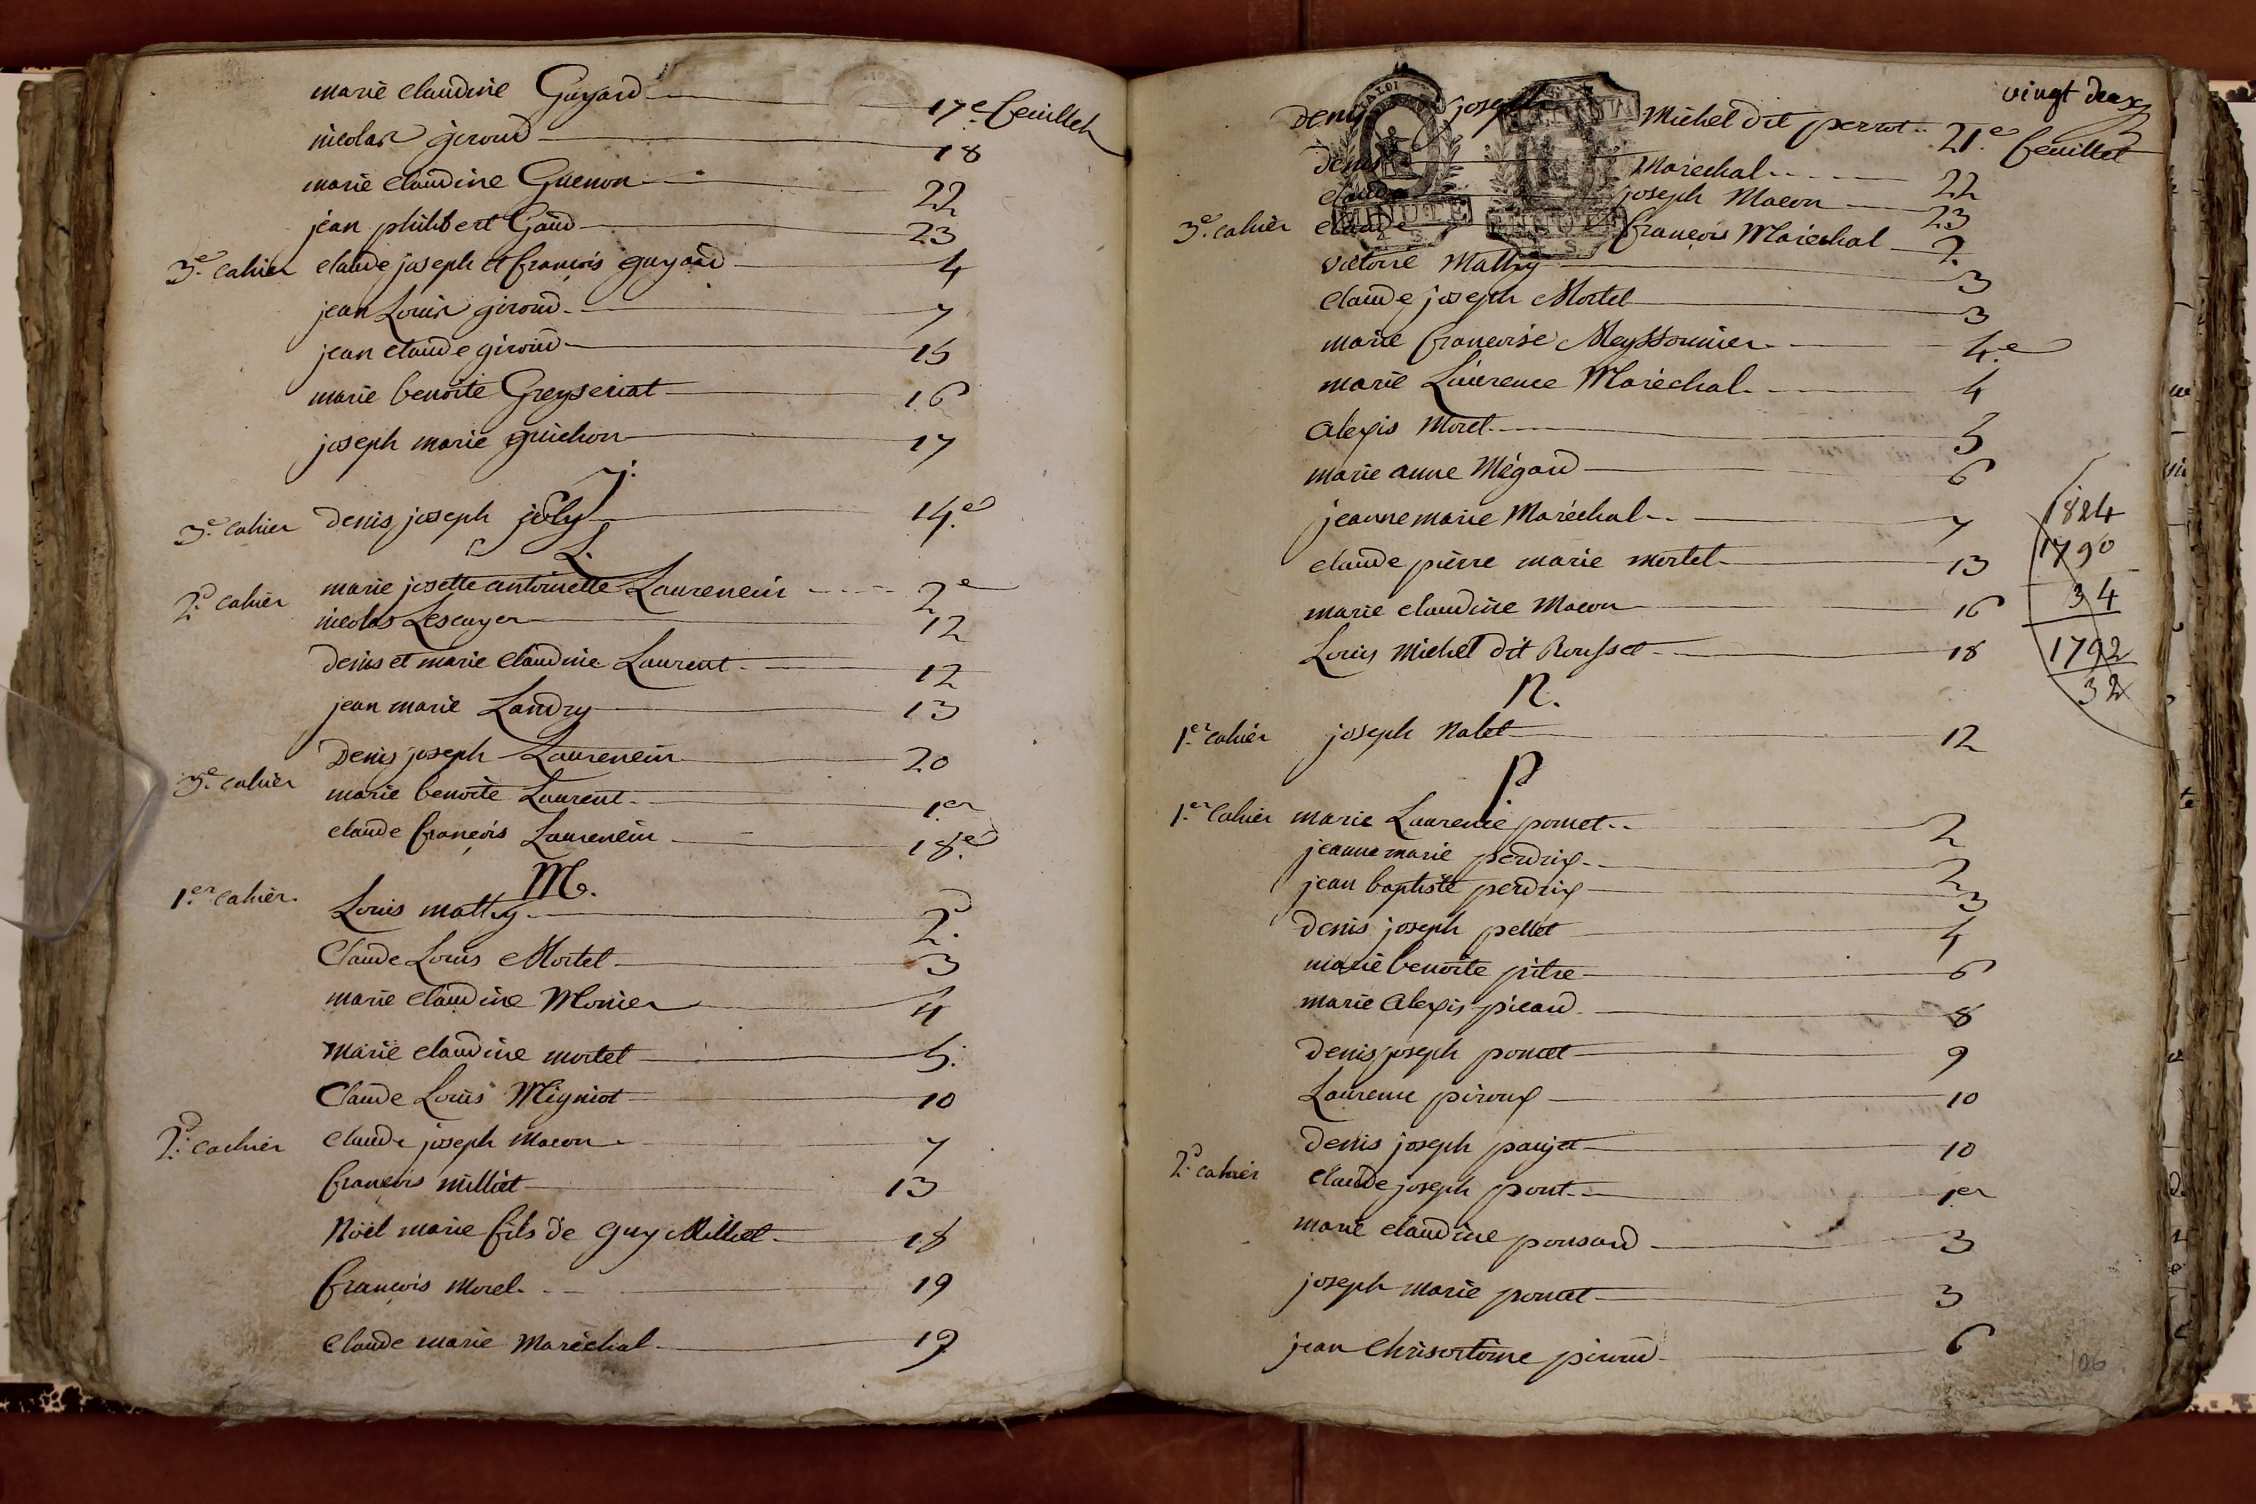 marie claudine Guyard 17.e feuillet
nicolas giroud 18
marie claudine Guenon 22
jean philibert Gaud 23
3.e cahier claude joseph et françois guyard 4
jean Louis giroud 7
jean claude giroud 15
marie benoite Greyseriat 16
joseph marie guichon 17
j.
3.e cahier denis joseph joly 14.e
L.
2.d cahier marie josette antoinette Laurencin 2e
nicolas Lescuyer 12
denis et marie claudine Laurent 12
jean marie Landry 13
Denis joseph Laurencin 20
3.e cahier marie benoite Laurent 1.er
claude françois Laurencin 18.e
M.
1.er cahier Louis mathy 2.d
Claude Louis Mortel 3
marie claudine Monier 4
marie claudine mortel 5.
Claude Louis Migniot 10
2.d cachier claude joseph macon 7
françois milliet 13
Noël marie fils de Guy Milliet 18
françois morel 19
claude marie maréchal 19
vingt deux
Denis joseph Michel dit perrot 21.e feuillet
denis Marechal 22
claude joseph Macon 23
3.e cahier claude françois Maréchal 2.
victoire Mathy 3
claude joseph Mortel 3
marie françoise Meyssonnier 4.e
marie Laurence Maréchal 4
alexis Morel 5
marie anne Mégard 6
jeanne marie Maréchal 7
claude pierre marie mortel 13
marie claudine Macon 16
Louis Michel dit Rousset 18
1824
1790
34
1792
32
N.
1.er cahier joseph Nalet 12
P.
1.er Cahier marie Laurence poncet 2
jeanne marie perdrix 2
jean baptiste perdrix 3
denis joseph pellet 4
marie benoite pitre 6
marie alexis picard 8
denis joseph poncet 9
Laurence piroux 10
denis joseph paujet 10
2.d cahier claude joseph pont 1er
marie claudine ponsard 3
joseph marie poncet 3
jean Chrisostôme 6
106